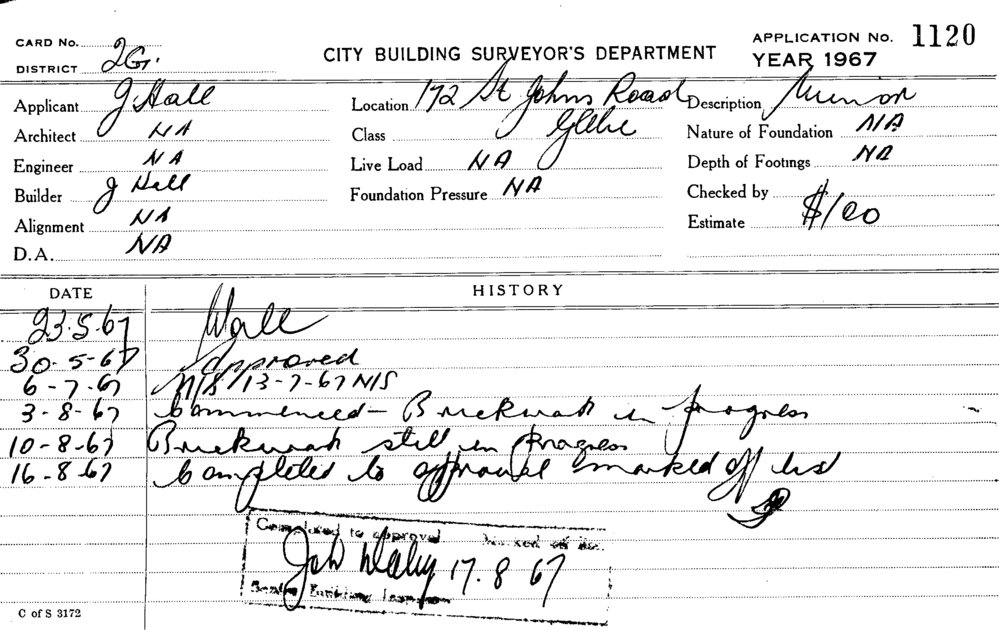 CARD No. 2G. CITY BUILDING SURVEYOR'S DEPARTMENT APPLICATION No. 1120
DISTRICT YEAR 1967
Applicant J Hall Location 172 St Johns Road Glebe Description Minor
Architect NA Class Nature of Foundation NA
Engineer NA Live Load NA Depth of Footings NA
Builder J Hall Foundation Pressure NA Checked by
Alignment NA Estimate $100
D.A. NA
DATE HISTORY
23.5.67 Wall
30-5-67 Approved
6-7-67 N/S 13-7-67 N/S
3-8-67 Commenced - Brickwork in progress
10-8-67 Brickwork still in progress
16-8-67 Completed to approval marked off list
Completed to approval Marked off
17.8.67
Building Inspector
C of S 3172